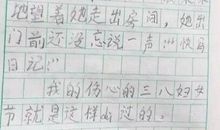 她望着他走出房间，她出
门前还没忘说一声："快写
日记！"
我的伤心的三八妇女
节就是这样的过的。